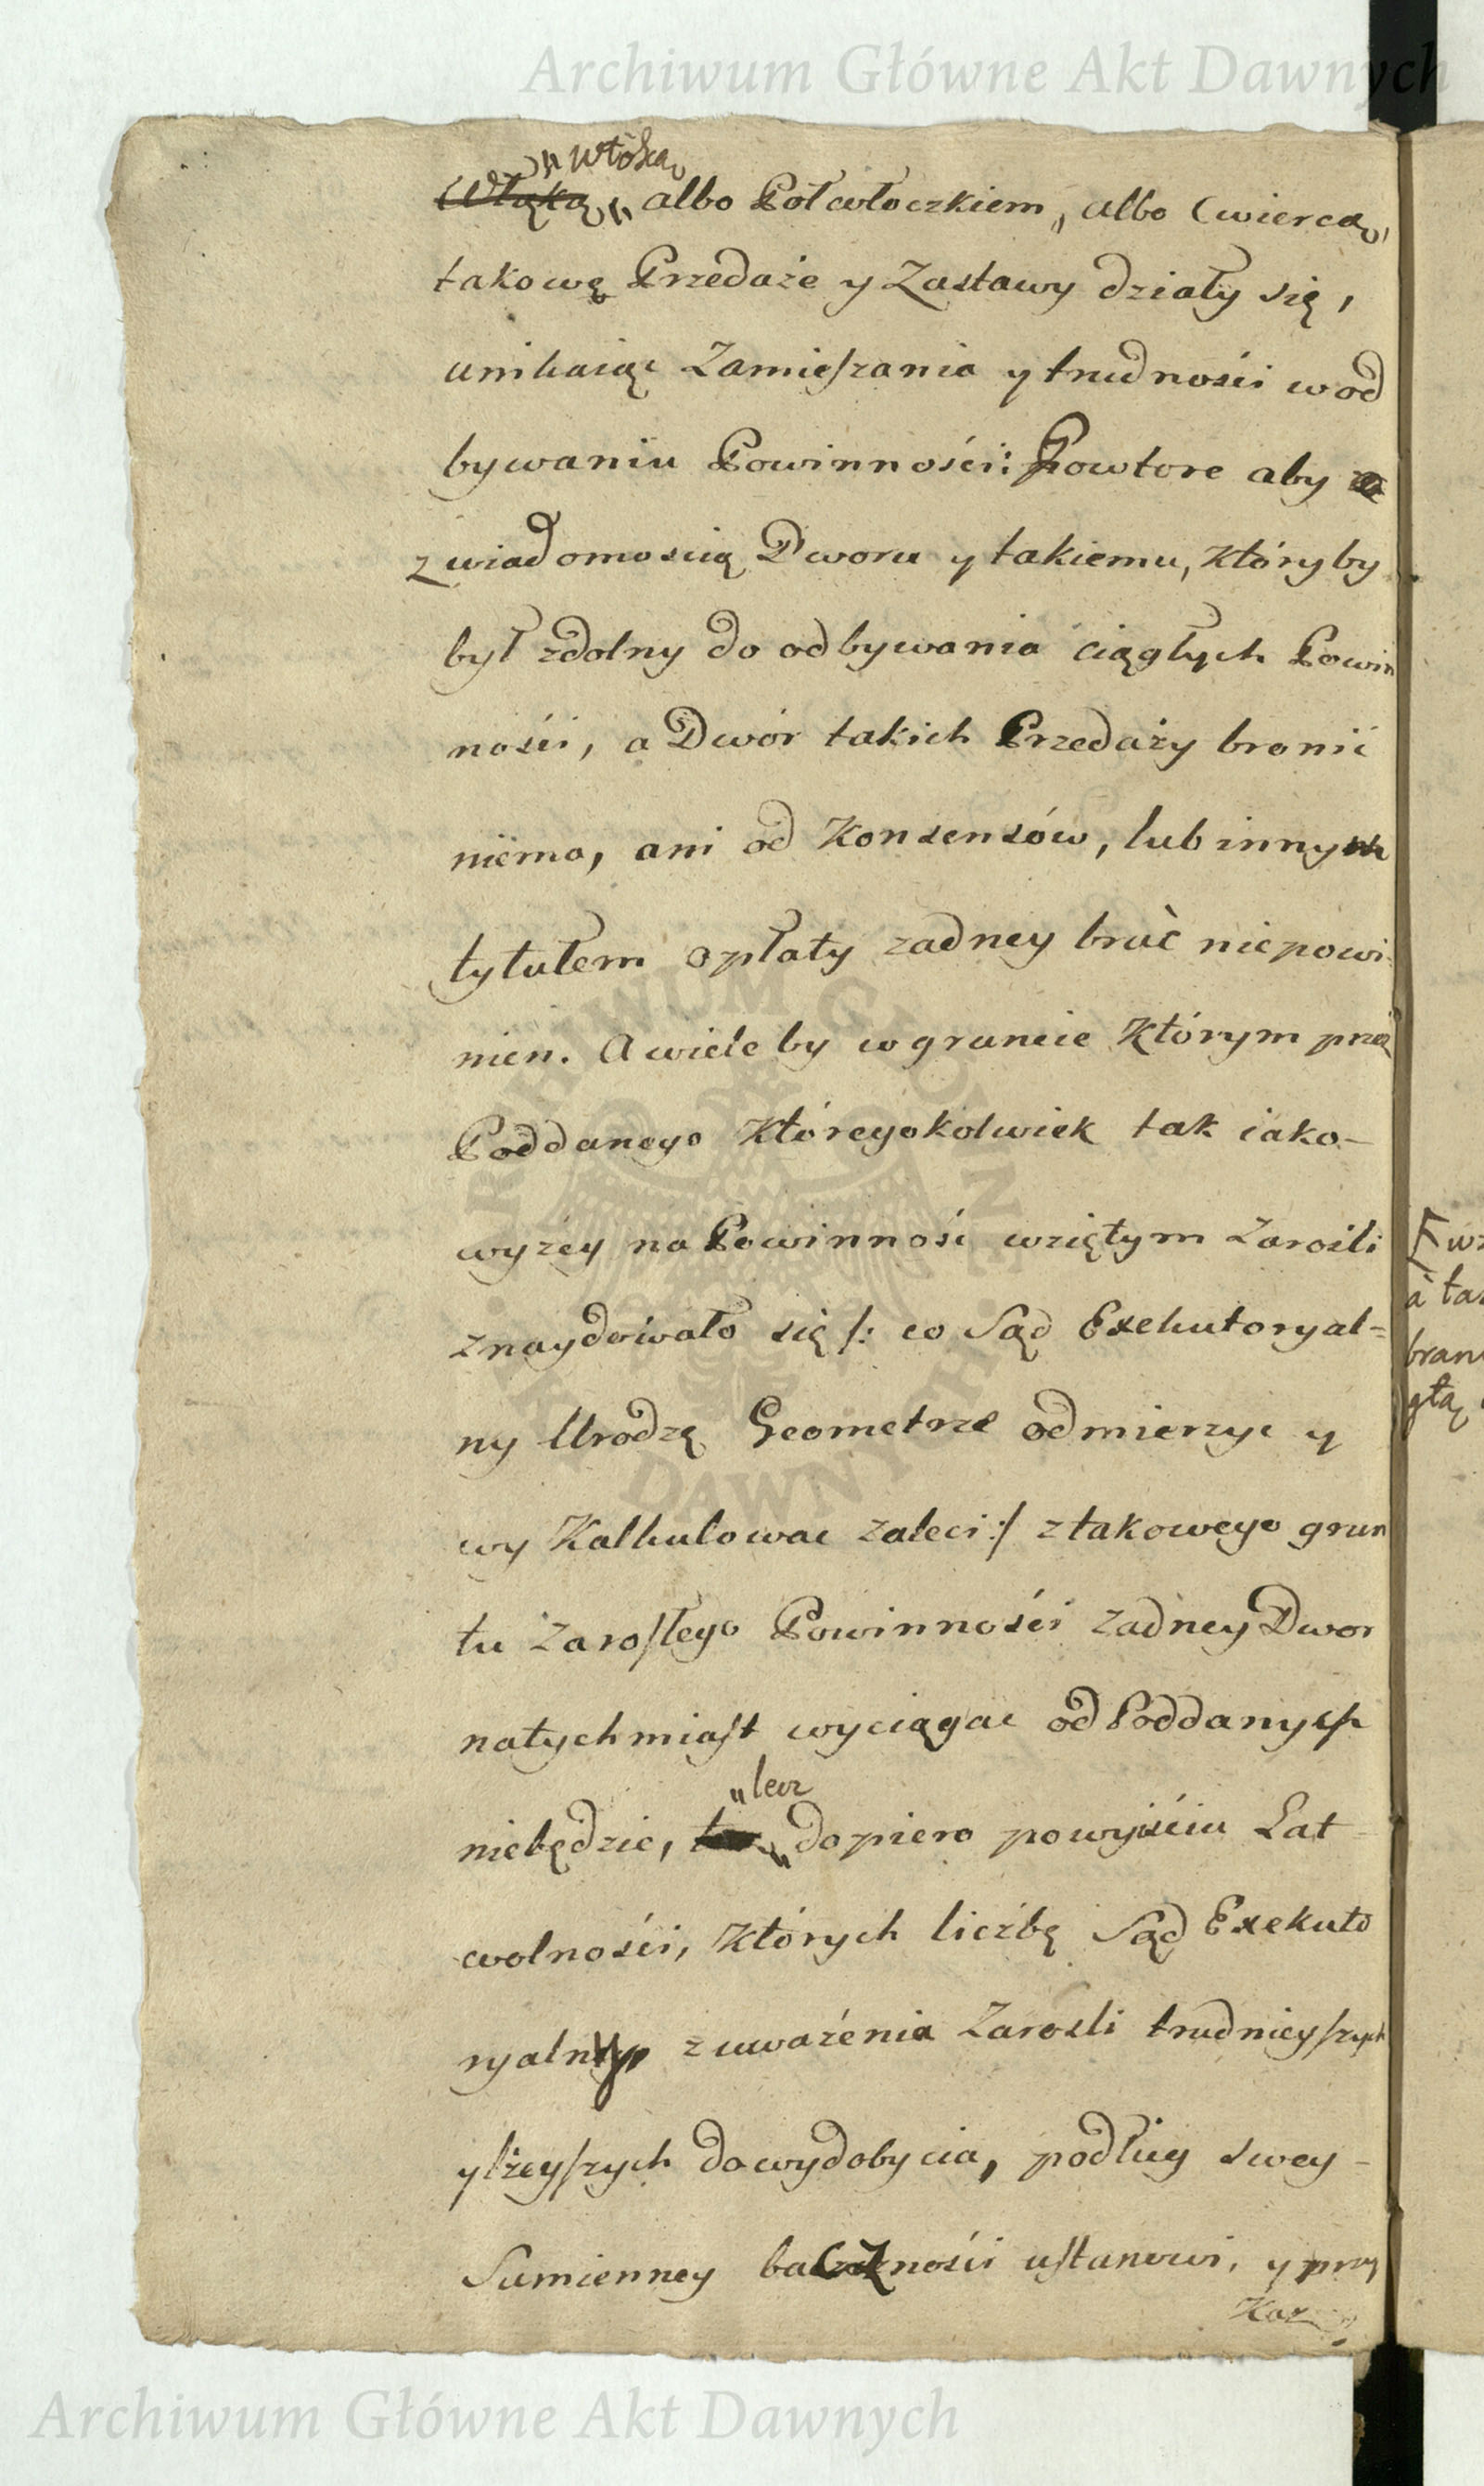 Archiwum Główne Akt Dawnych
„Włóką
Włąką „ albo Połwłoczkiem, albo Cwiercą,
takowę Przedaże y Zastawy działy się,
unikaiąc Zamieszania y trudności w od
bywaniu Powinności: Powtore aby
z wiadomoscią Dworu y takiemu, któryby
był zdolny do odbywania ciągłych Powin
ności, a Dwór takich Przedaży bronić
niema, ani od Konsensów, lub innym
tytułem opłaty zadney brać niepowi
nien. A wieleby w gruncie którym przez
Poddanego któregokolwiek tak iako-
wyżey na Powinność wziętym Zarośli
znaydowało się /: co Sąd Exekutoryal=
ny Urodzę Geometrze odmierzyc y
wy Kalkulowac zaleci :/ z takowego grun
tu zarosłego Powinności zadney Dwor
natychmiast wyciągac od Poddanych
„lecz
niebędzie, „ dopiero powyiściu Lat
wolności, których liczbę Sąd Exekuto
ryalny z uważenia Zarośli trudnieyszych
y lżeyszych do wydobycia, podług swey-
Sumienney baczności ustanowi, y przy
Kaz
w
a ta
bran
głą
ARCHIWUM GŁÓWNE AKT DAWNYCH
Archiwum Główne Akt Dawnych